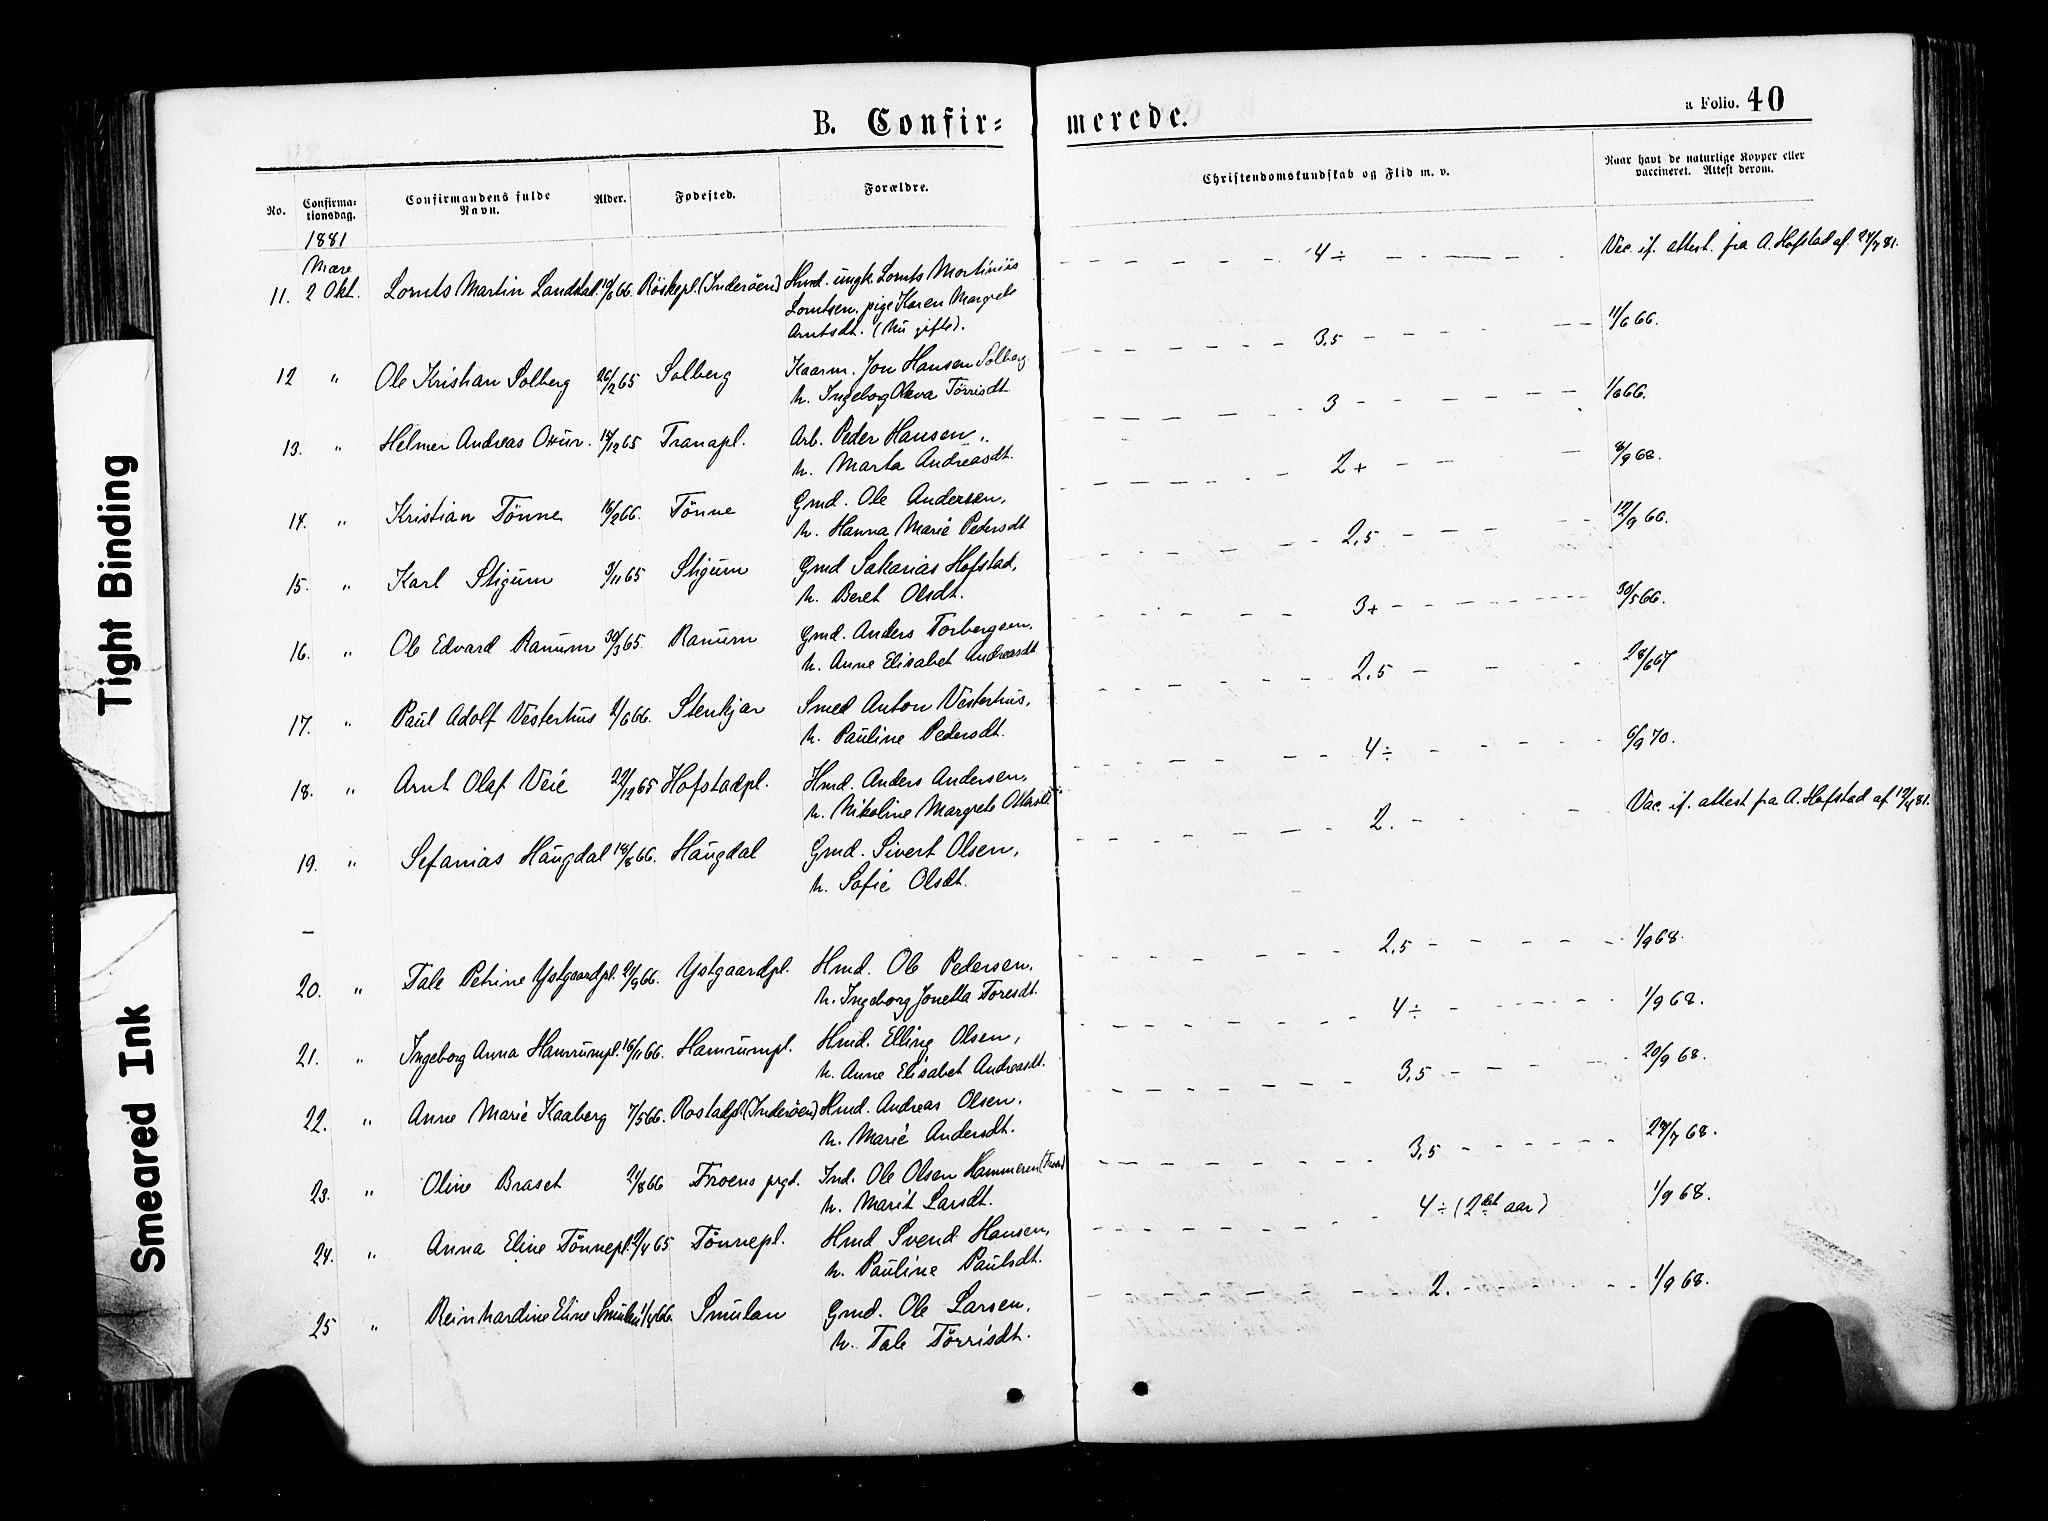 B. Confir=
merede.
a Folio. 40
No.
Confirma-
tionsdag.
Confirmandens fulde
Navn.
Alder.
Fødested.
Forældre.
Christendomskundskab og Flid m. v.
Naar havt de naturlige Kopper eller
vaccineret. Attest derom.
1881
Mære
11. 2 Okt. Lornts Martin Landstad. 66. Röskepl. (Inderöen) Hmd. ungk. Lornts Mortinius 4 ÷ Vac. if. attest. fra A. Hofstad af. 24/7 81.
Lorntsen, pige Karen Margrete
Arntsdt. (Nu gifte).
12 " Ole Kristian Solberg 26/2 65 Solberg Kaarm. Jon Hansen Solberg. 3,5 11/6 66.
h. Ingeborg Olava Törrisdt
13. " Helmer Andreas 65 Tranapl. Arb. Peder Hansen, 3 1/6 66.
h. Marta Andreasdt.
14. " Kristian Tönne 16/2 66. Tönne Gmd. Ole Andersen, 2 + 8/9 68.
h. Hanna Marie Pedersdt
15. " Karl Stigum 3/11 65 Stigum Gmd Sakarias Hofstad, 2,5 12/9 66.
h. Beret Olsdt.
16. " Ole Edvard Ranum 30/3 65. Ranum Gmd. Anders Torbergsen, 3 + 30/5 66.
h. Anne Elisabet Andreasdt
17. " Paul Adolf Vesterhus 2/6 66. Stenkjær Smed Anton Vesterhus, 2,5 28/6 67
h. Pauline Pedersdt.
18. " Arnt Olaf Veie 22/12 65 Hofstadpl. Hmd. Anders Andersen, 4 ÷ 6/9 70.
h. Nikoline Margrete
19. " Sefanias Haugdal 18/8 66. Haugdal Gmd. Sivert Olsen, 2. Vac. if. attest fra A. Hofstad af 12/4 81.
h. Sofie Olsdt.
—
20. " Tale Petrine Ystgaardpl. 21/9 66. Ystgaardpl. Hmd. Ole Pedersen, 2,5 1/9 68.
h. Ingeborg Jonetta Toresdt.
21. " Ingeborg Anna Hamrumpl. 16/11 66. Hamrumpl. Hmd. Elling Olsen, 4 ÷ 1/9 68.
h. Anne Elisabet Andreasdt.
22. " Anne Marie Kaaberg 7/5 66. Rostadpl (Inderöen) Hmd. Andreas Olsen, 3,5 20/9 68.
h. Marie Andersdt.
23. " Oline Braset 2/8 66 prgd. Ind. Ole Olsen Hammeren 3,5 27/7 68.
h. Marit Larsdt.
24. " Anna Eline Tönnepl. 2/4 65 Tönnepl. Hmd Svend Hansen, 4 ÷ (2det aar) 1/9 68.
h. Pauline Paulsdt.
25 " Reinhardine Eline Smulan 1/4 66. Smulan Gmd. Ole Larsen, 2. 1/9 68.
h. Tale Törrisdt.
Tight Binding
Smeared Ink